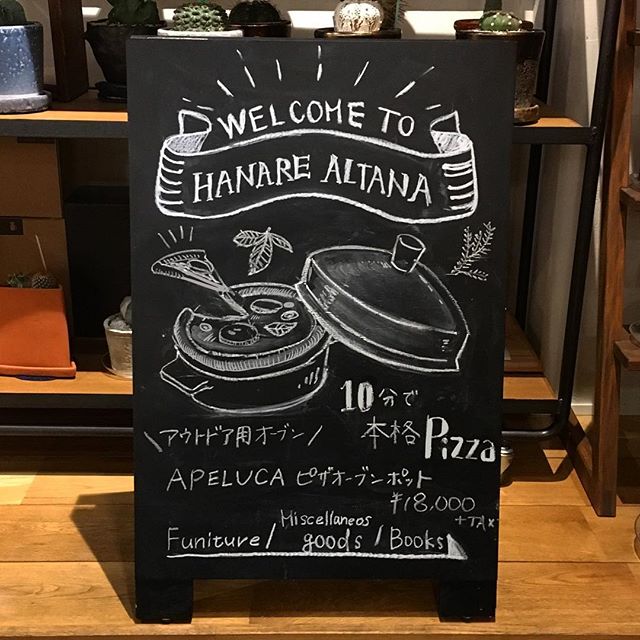 WELCOME TO
HANARE ALTANA
10分で
本格 Pizza
\アウトドア用オーブン/
APELUCA ピザオーブンポット
¥18,000
+TAX
Funiture/ Miscellaneos goods / Books